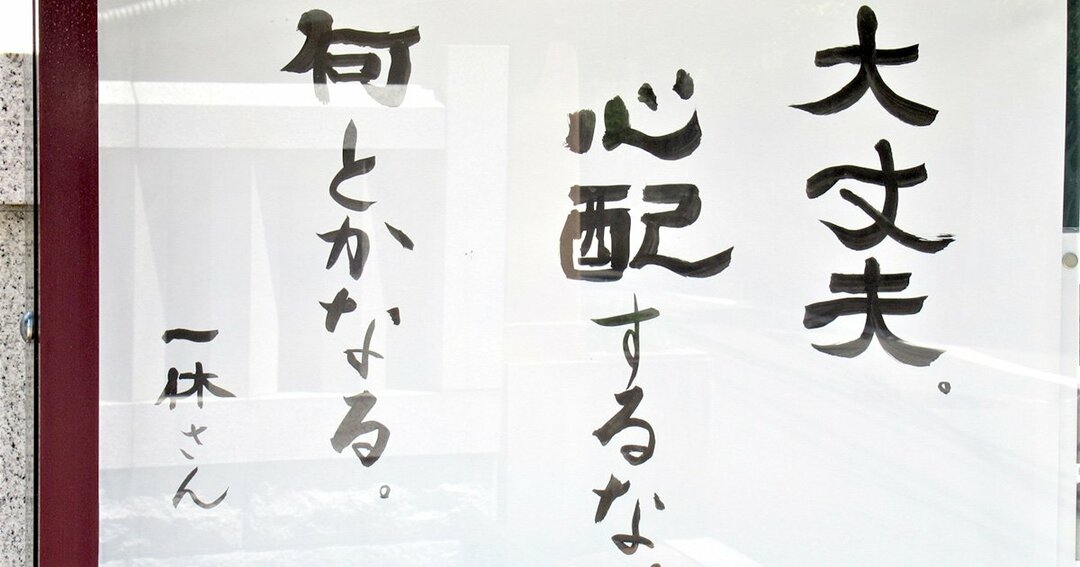 大丈夫。
心配するな。
何とかなる。
一休さん